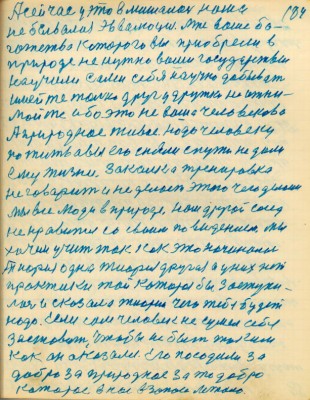 184
А сейчас у этой мишанах нами
не бывалая Эвалюция. Мне ваше бо-
гатство Которого вы приобрели в
природе не нужно ваши государствы
научили сами себя научно добывать
имейте только друг у дружки не отни-
мойте ибо это не ваше человеково
А природное живое. Надо человеку
пожить а вы его своим спутн не дали
ему жизни. Закалка тренировка
не говорит и не делает этого чего делали
мы все люди в природе, наш другой сосед
не нравится со своим поведением. мы
хочим учит так Как это начиналос
Тиория одна тиория другая а у них нет
практики той Которая бы заступи-
лас и сказала тиория чего тебе будет
надо. Если сам человек не сумел себя
заставит, чтобы не быт таким
как он оказался. Его посадили за
добро за природное за то добро
Которое в нас взапас легало.